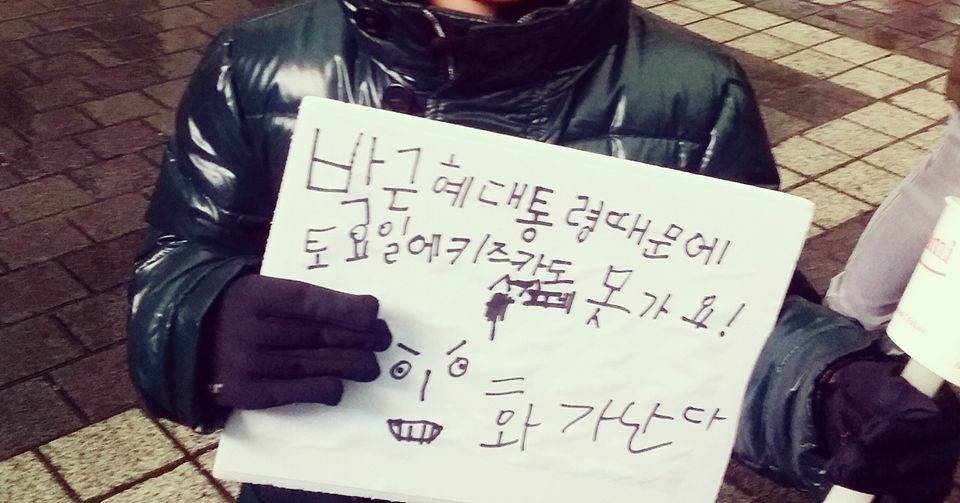 박근혜 대통령때문에
토요일에키즈카도 못가요!
= 화가난다